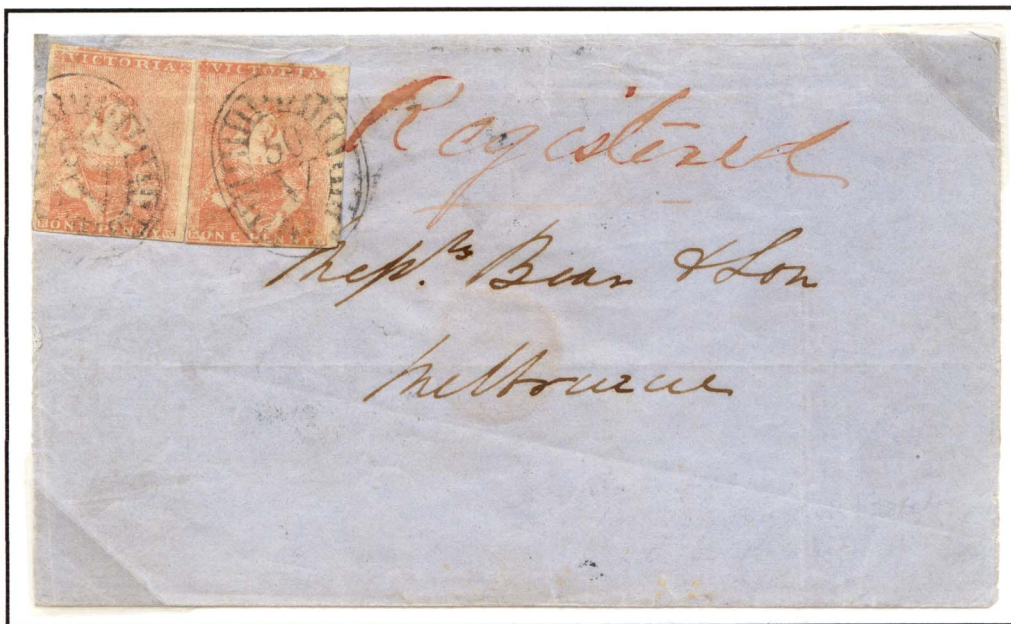 VICTORIA VICTORIA
ONE PENNY ONE PENNY
50
V
Registered
Messrs. Bear & Son
Melbourne